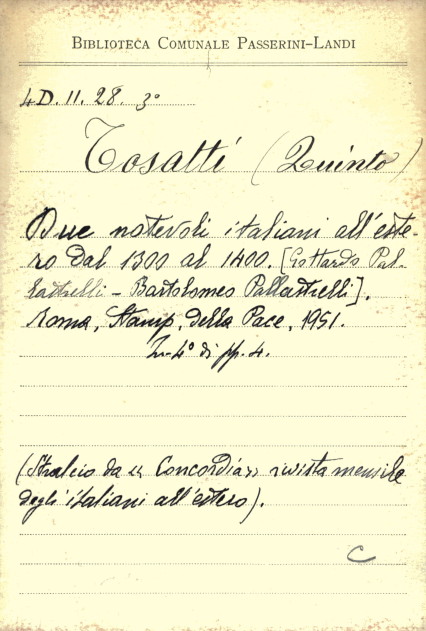 BIBLIOTECA COMUNALE PASSERINI-LANDI
4D.11.28.3°
Tosatti (Quinto)
Due notevoli italiani all'este-
ro dal 1300 al 1400. [Gottardo Pal-
lastrelli - Bartolomeo Pallastrelli].
Roma, Stamp. della Pace, 1951.
In-4° di pp. 4.
(Stralcio da "Concordia" rivista mensile
degli italiani all'estero).
C